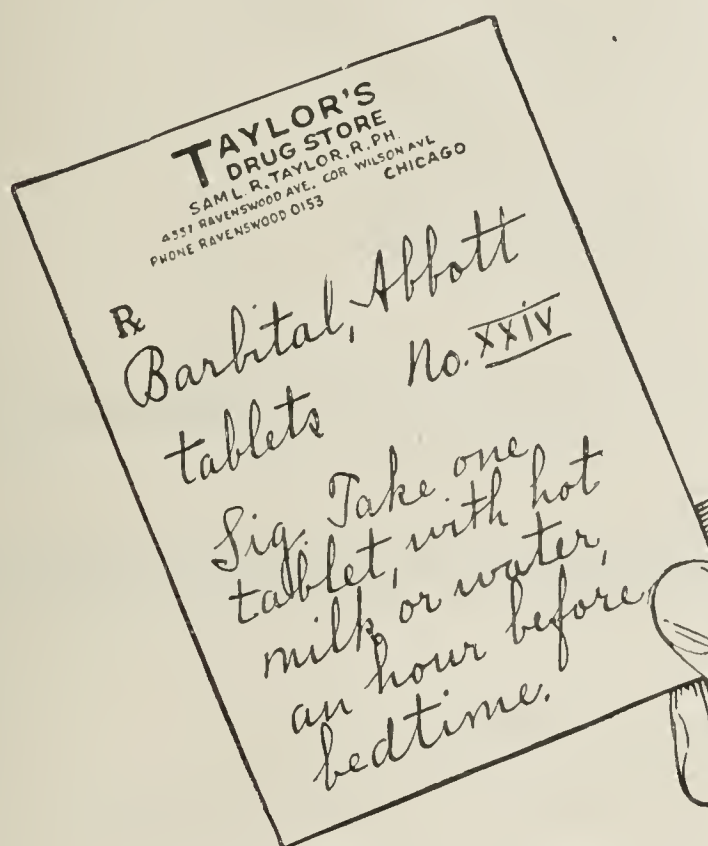 TAYLOR'S
DRUG STORE
SAM L. R. TAYLOR, R. PH.
4557 RAVENSWOOD AVE. COR WILSON AVE
PHONE RAVENSWOOD 0153 CHICAGO
Rx
Barbital, Abbott
tablets No. XXIV
Sig. Take one
tablet, with hot
milk or water,
an hour before
bedtime.